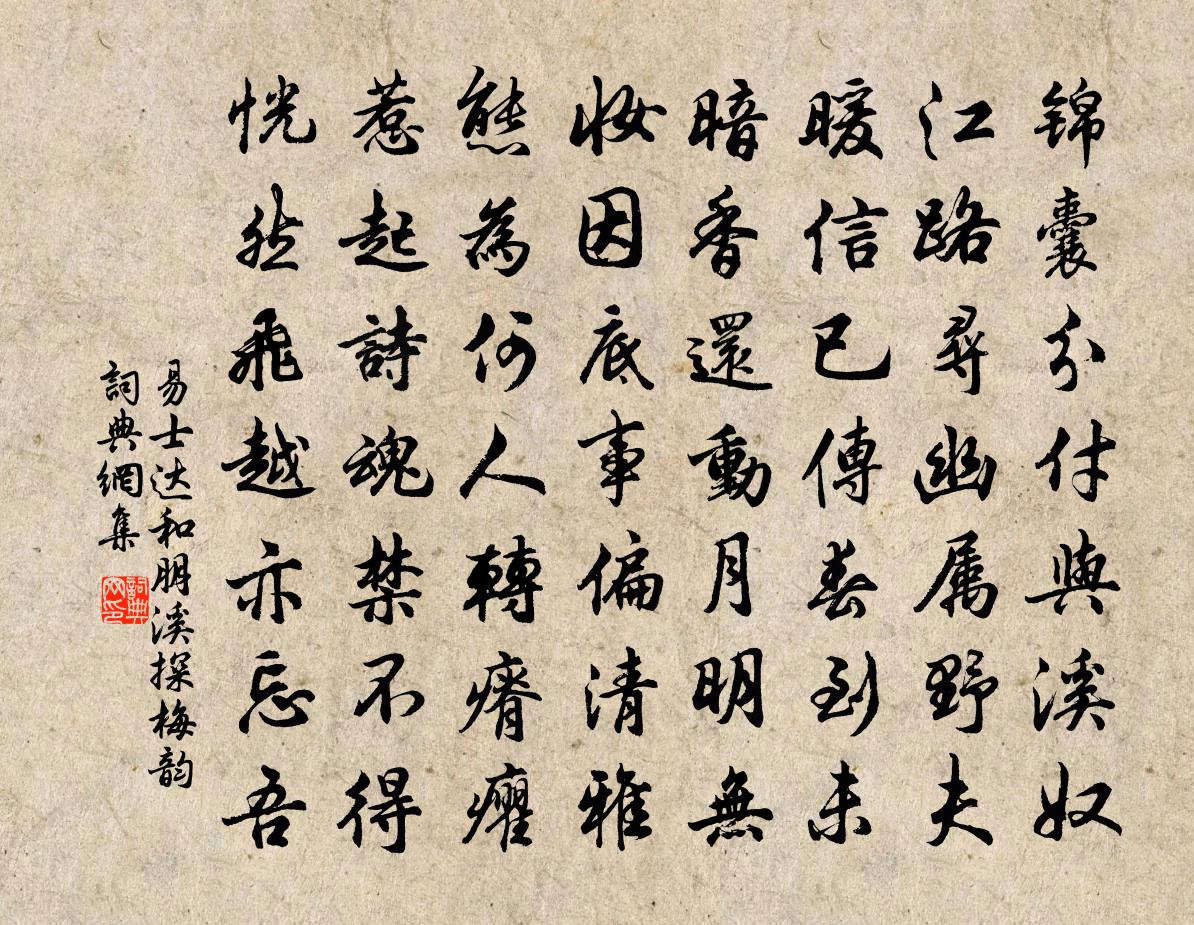 锦囊分付與溪奴
江路尋幽属野夫
暖信已傳春到未
暗香還動月明無
妝因底事偏清雅
態為何人轉瘠癯
惹起詩魂禁不得
恍然飛越亦忘吾
易士达和朋溪探梅韵
詞典網集
詞典网印